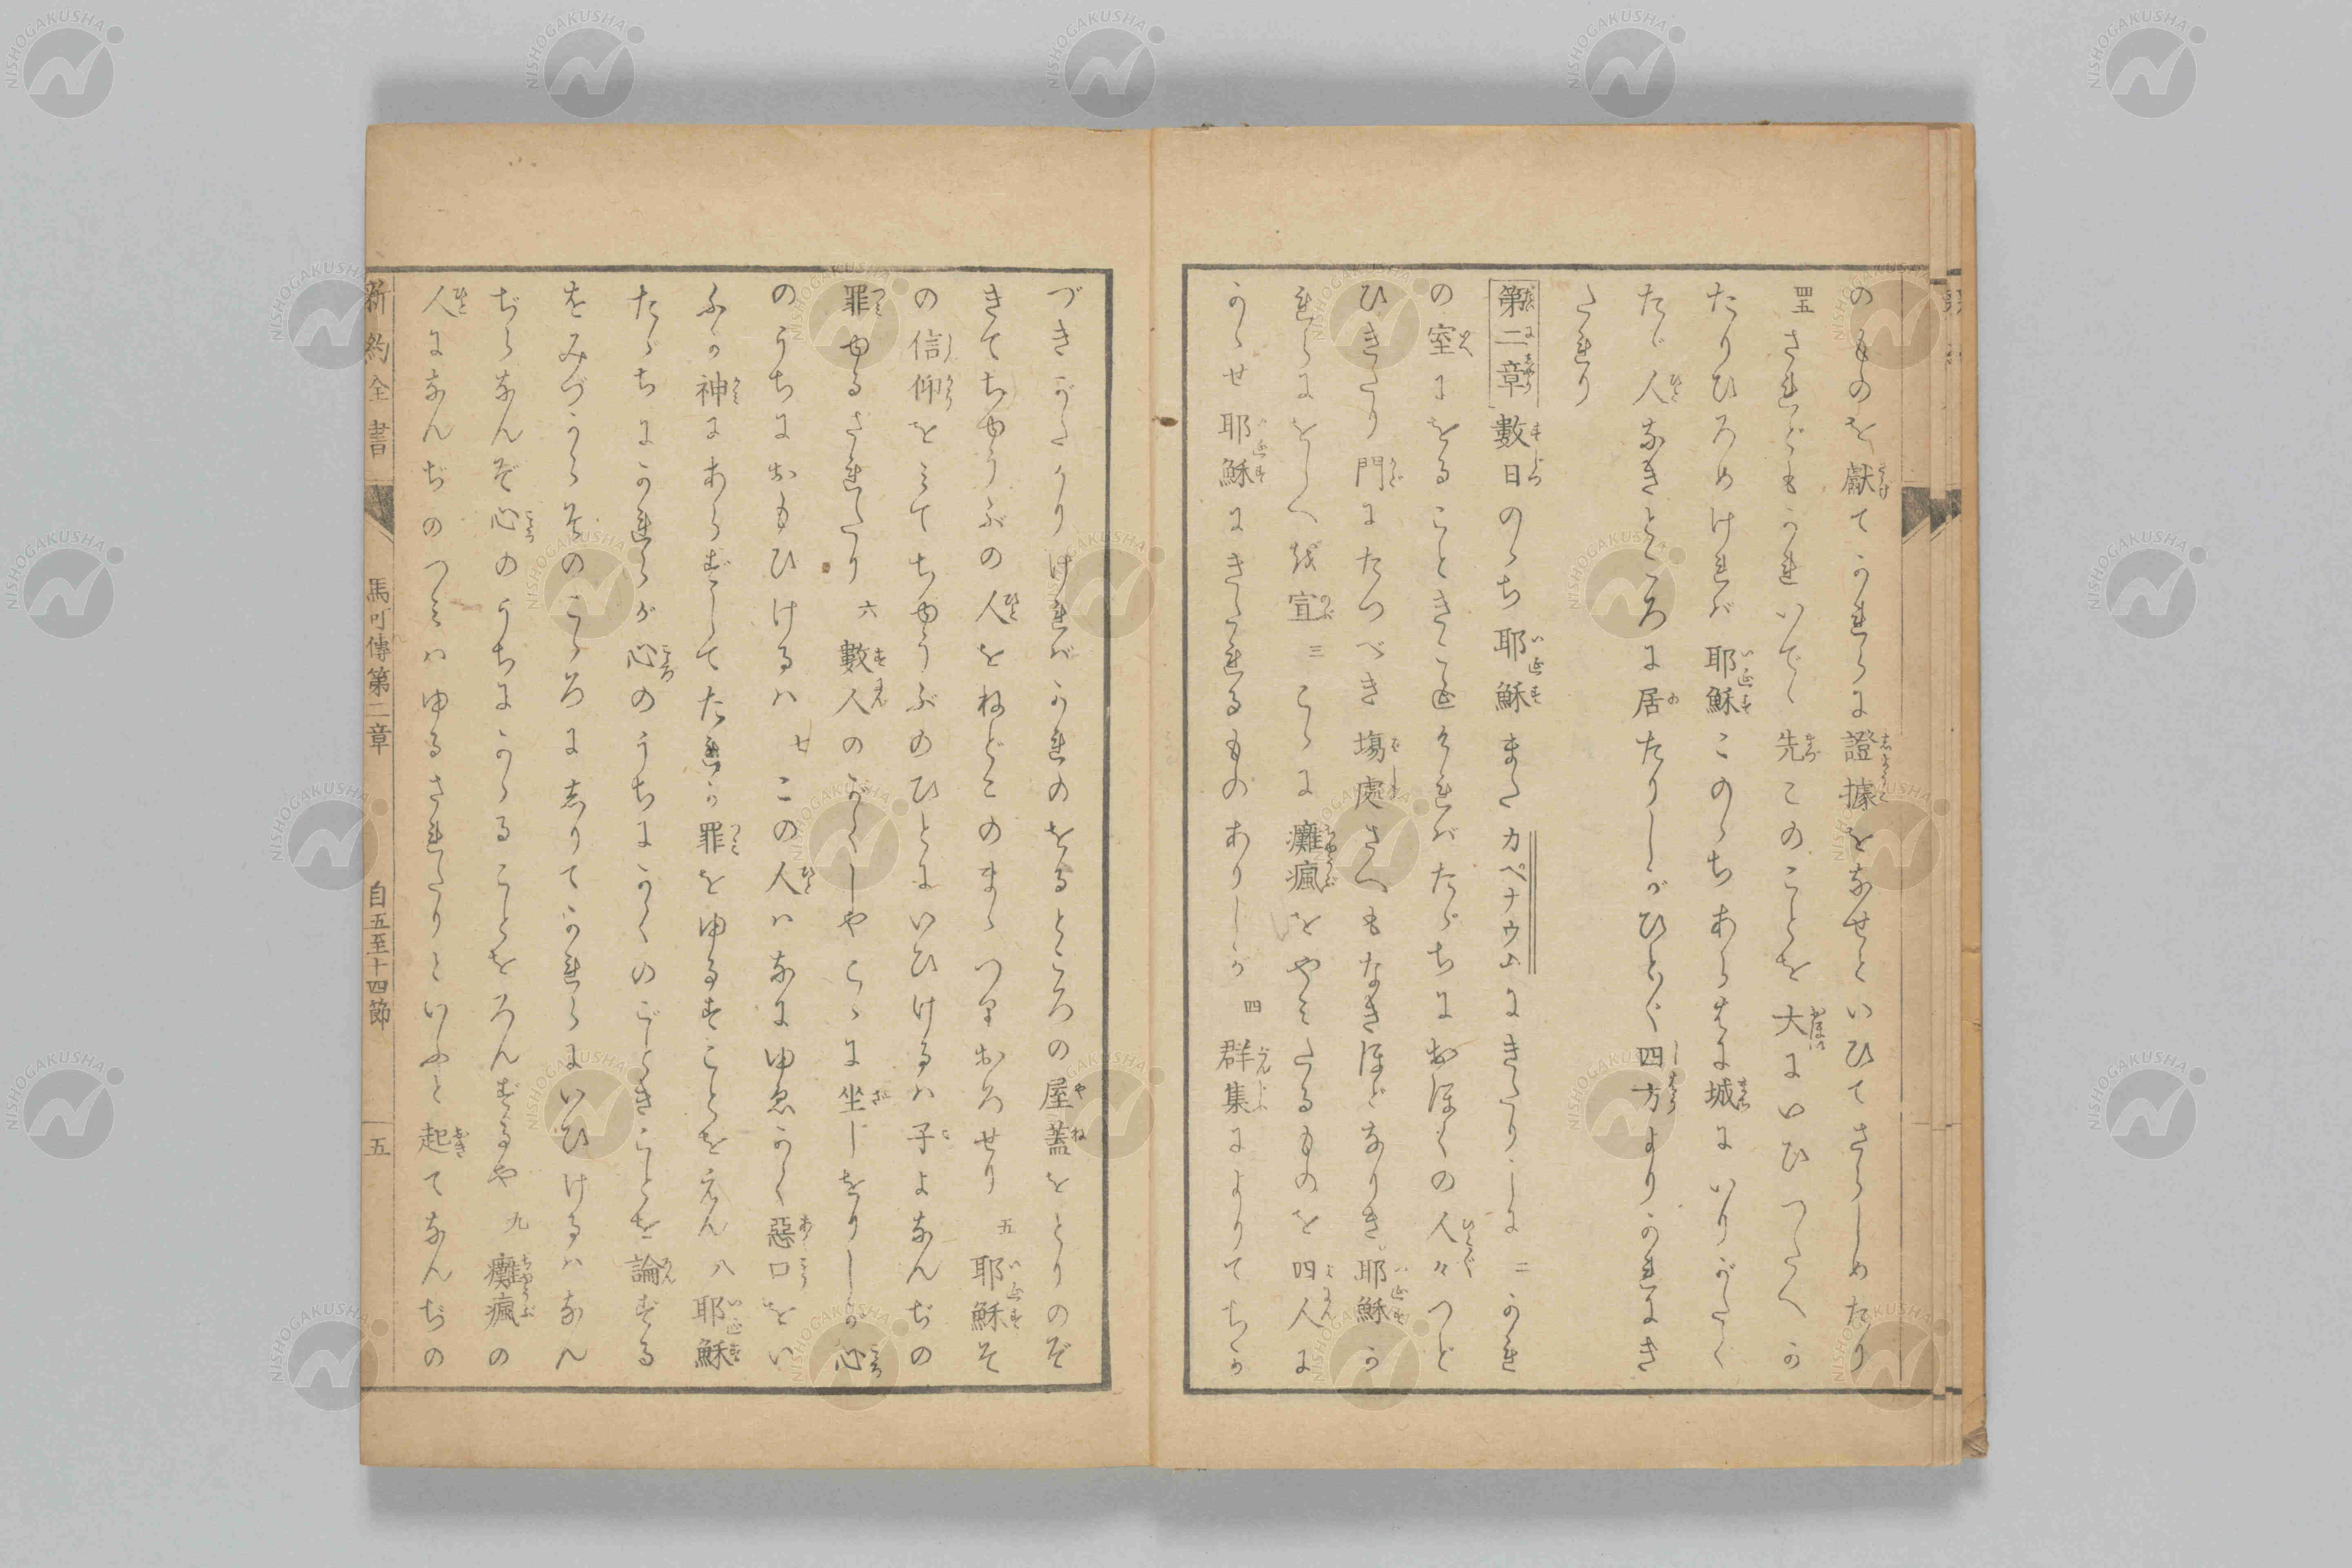 のものを獻てかれらに證據をなせといひてさらしめたり
四五されどもかれいでゝ先このことを大にいひつたへか
たりひろめければ耶穌このゝちあらはに城にいりがたく
たゞ人なきところに居たりしがひとく四方よりかれにき
たれり
第二章數日のゝち耶穌またカペナウムにきたりしに二かれ
の室にをることきこえければたゞちにおほくの人々つど
ひきたり門にたつべき塲處さへもなきほどなりき耶穌か
れらにをしへを宣三こゝに癱瘋をやみたるものを四人に
かゝせ耶穌にきたれるものありしが四群集によりてちか
づきがたかりければかれのをるところの屋蓋をとりのぞ
きてちゆうぶの人をねどこのまゝつりおろせり五耶穌そ
の信仰をみてちゆうぶのひとにいひけるハ子よなんぢの
罪ゆるされたり六數人のがくしやこゝに坐じをりしが心
のうちにおもひけるハ七この人ハなにゆゑかく惡口をい
ふか神にあらずしてたれか罪をゆるすことをえん八耶穌
たゞちにかれらが心のうちにかくのごときことを論ずる
をみづからそのこゝろにしりてかれらにいひけるハなん
ぢらなんぞ心のうちにかゝることをろんずるや九癱瘋の
人になんぢのつミハゆるされたりといふと起てなんぢの
新約全書 馬可傳第二章 自五至十四節 五
NISHOGAKUSHA